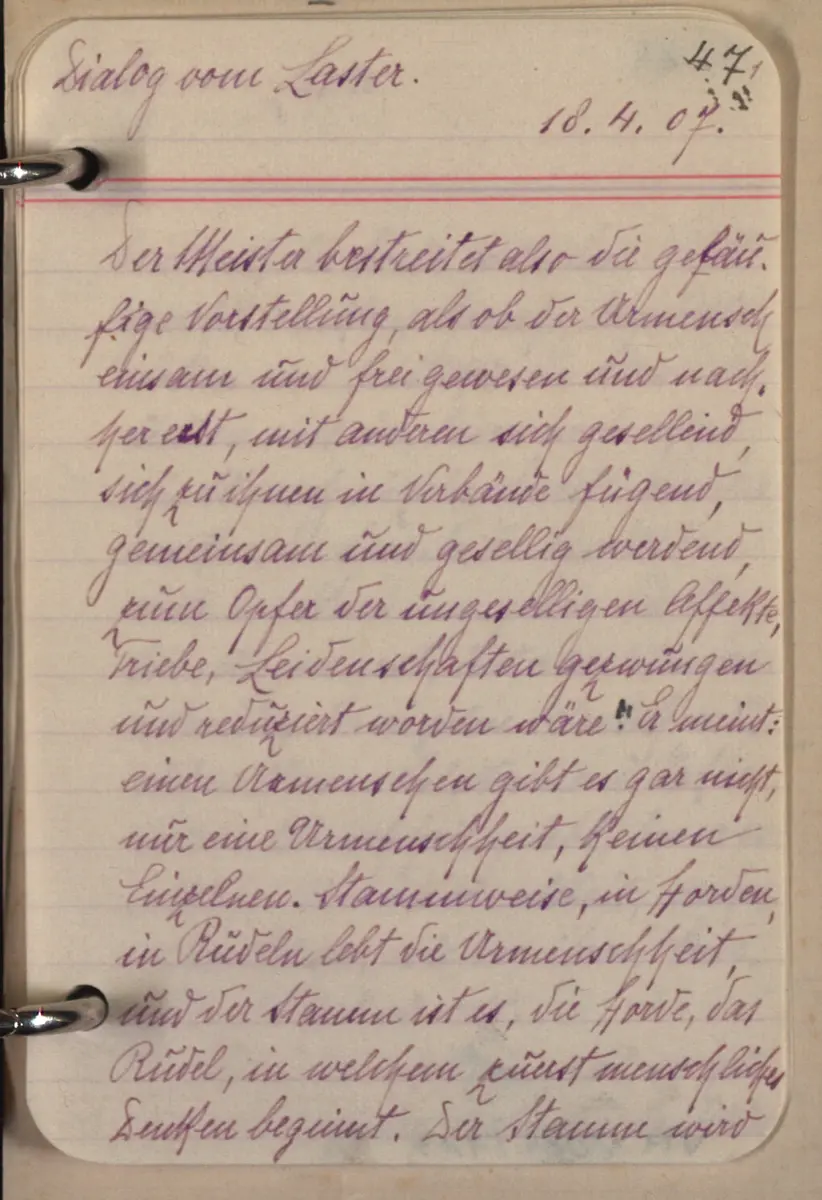 Dialog vom Laster.
47,
18. 4. 07.
Der Meister bestreitet also die gefäu-
fige Vorstellung, als ob der Urmensch
einsam und frei gewesen und nach-
her erst, mit anderen sich gesellend,
sich zu ihnen in Verbände fügend,
gemeinsam und gesellig werdend,
zum Opfer der ungeselligen Affekte,
Triebe, Leidenschaften gezwungen
und reduziert worden wäre! Er meint:
einen Urmenschen gibt es gar nicht,
nur eine Urmenschheit, keinen
Einzelnen. Stammweise, in Horden,
in Rudeln lebt die Urmenschheit,
und der Stamm ist es, die Horde, das
Rudel, in welchem zuerst menschliches
Denken beginnt. Der Stamm wird